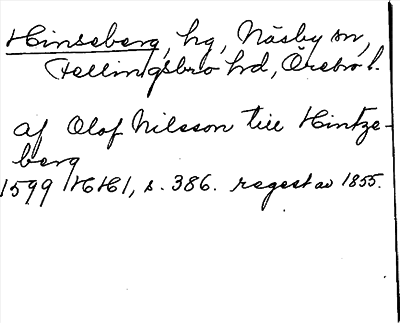 Hinseberg, hg, Näsby sn,
Fellingsbro hd, Örebro l.
af Olof Nilsson till Hintze-
berg
1599 HH1, s. 386. regest av 1855.